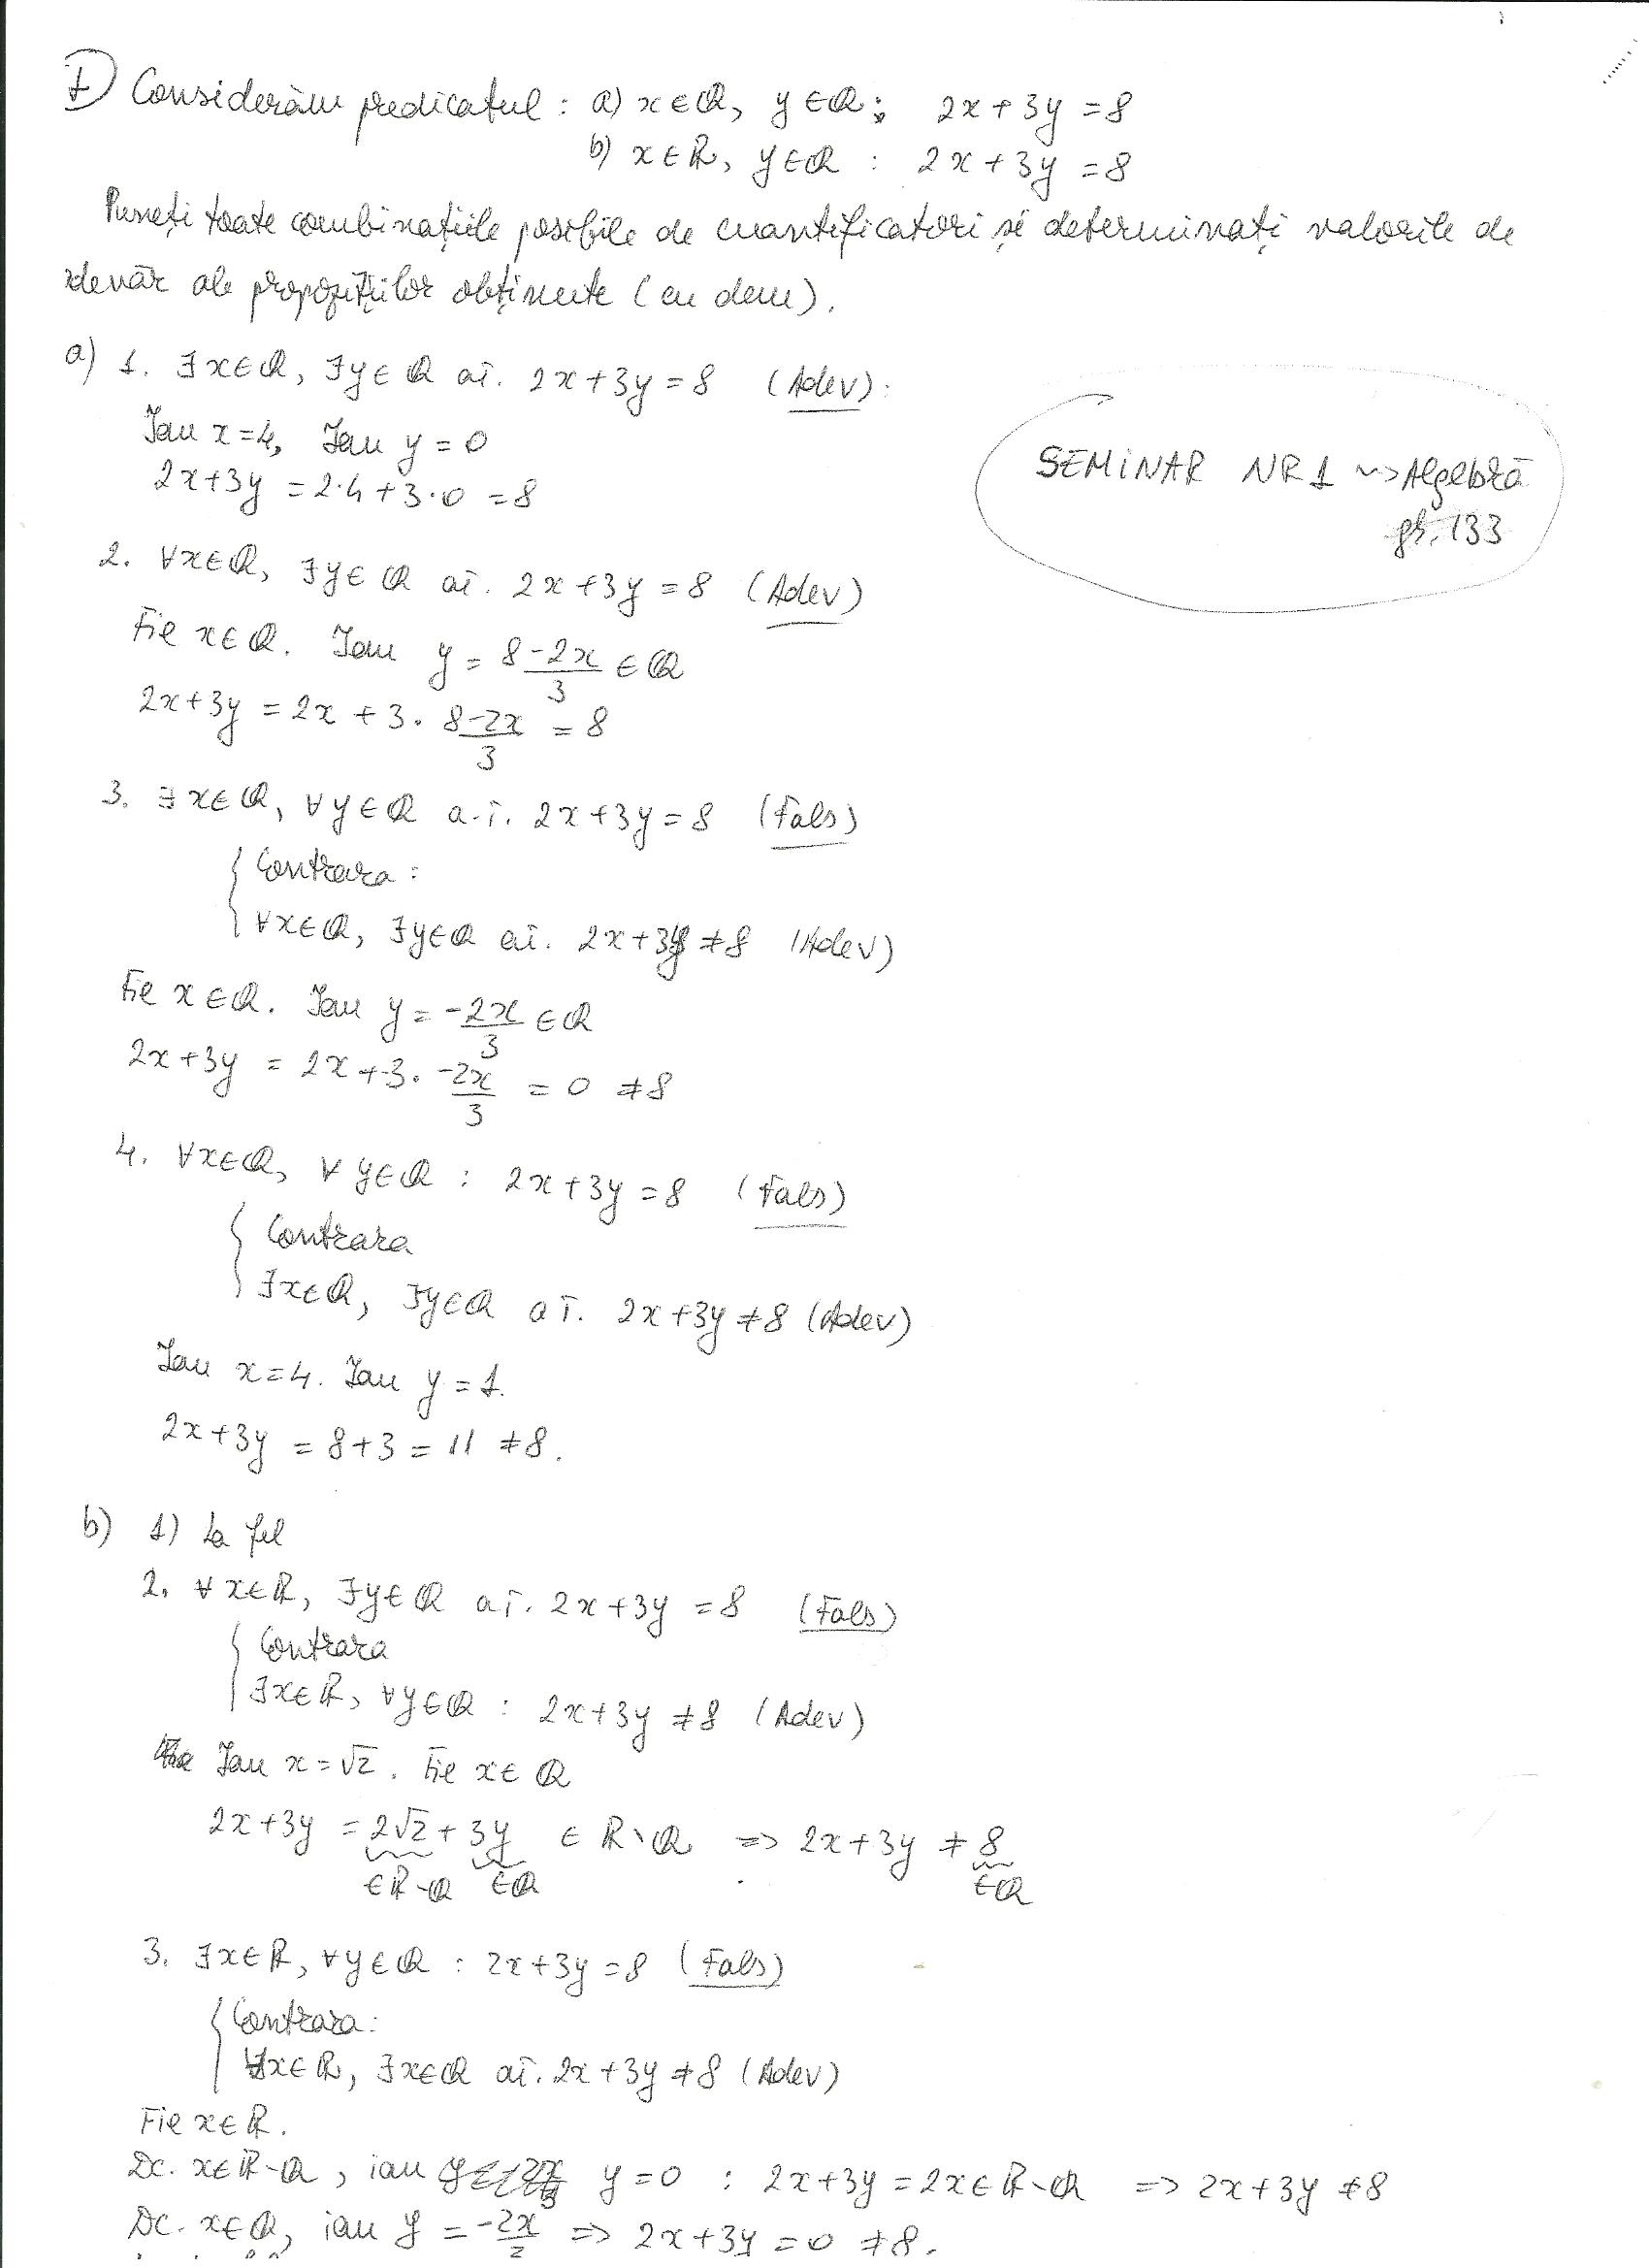 I) Considerăm predicatul : a) x∈ℚ, y∈ℚ; 2x+3y=8
b) x∈ℝ, y∈ℚ : 2x+3y=8
Puneți toate combinațiile posibile de cuantificatori și determinați valorile de
adevăr ale propozițiilor obținute (cu dem).
a) 1. ∃x∈ℚ, ∃y∈ℚ aî. 2x+3y=8 (Adev).
Iau x=4, Iau y=0
2x+3y=2·4+3·0=8
SEMINAR NR 1 ~> Algebră
gr. 133
2. ∀x∈ℚ, ∃y∈ℚ aî. 2x+3y=8 (Adev)
Fie x∈ℚ. Iau y = (8-2x)/3 ∈ℚ
2x+3y = 2x + 3· (8-2x)/3 = 8
3. ∃x∈ℚ, ∀y∈ℚ a.î. 2x+3y=8 (Fals)
Contrara :
∀x∈ℚ, ∃y∈ℚ aî. 2x+3y≠8 (Adev)
Fie x∈ℚ. Iau y = -2x/3 ∈ℚ
2x+3y = 2x+3· -2x/3 = 0 ≠8
4. ∀x∈ℚ, ∀y∈ℚ : 2x+3y=8 (Fals)
Contrara
∃x∈ℚ, ∃y∈ℚ aî. 2x+3y≠8 (Adev)
Iau x=4. Iau y=1.
2x+3y = 8+3 = 11 ≠8.
b) 1) La fel
2. ∀x∈ℝ, ∃y∈ℚ aî. 2x+3y=8 (Fals)
Contrara
∃x∈ℝ, ∀y∈ℚ : 2x+3y≠8 (Adev)
Iau x=√2. Fie x∈ℚ
2x+3y = 2√2+3y ∈ ℝ\ℚ => 2x+3y ≠ 8
∈ℝ-ℚ ∈ℚ ∈ℚ
3. ∃x∈ℝ, ∀y∈ℚ : 2x+3y=8 (Fals)
Contrara:
∀x∈ℝ, ∃x∈ℚ aî. 2x+3y≠8 (Adev)
Fie x∈ℝ.
Dc. x∈ℝ-ℚ, iau y=0 : 2x+3y=2x∈ℝ\ℚ => 2x+3y≠8
Dc. x∈ℚ, iau y = -2x/3 => 2x+3y=0 ≠8.